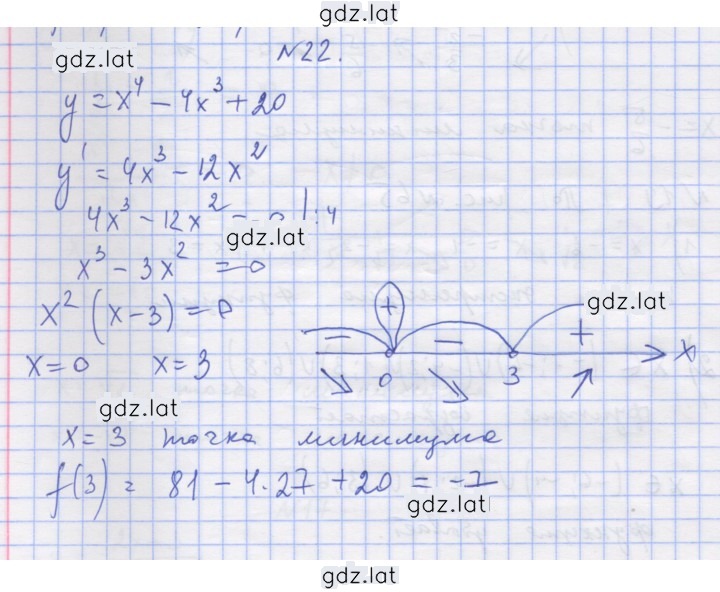 gdz.lat
gdz.lat
№22.
y = x⁴ − 4x³ + 20
y' = 4x³ − 12x²
4x³ − 12x² = 0 | : 4
gdz.lat
x³ − 3x² = 0
x² (x − 3) = 0
gdz.lat
− + − +
x = 0 x = 3
0 3 x
gdz.lat
x = 3 точка минимума
f(3) = 81 − 4·27 + 20 = −7
gdz.lat
gdz.lat